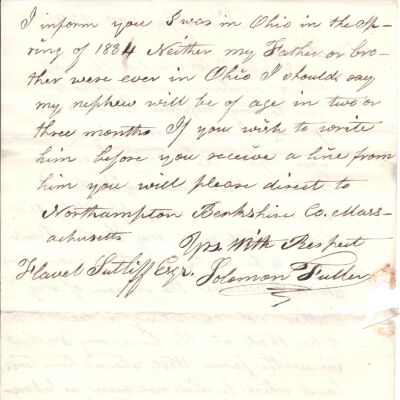 I inform you I was in Ohio in the Sp-
ring of 1834 Neither my Father or bro-
ther were ever in Ohio I should say
my nephew will be of age in two or
three months If you wish to write
him before you receive a line from
him you will please direct to
Northampton Berkshire Co. Mass-
achusetts
Yrs. With Respect
Flavel Sutliff Esqr. Solomon Fuller